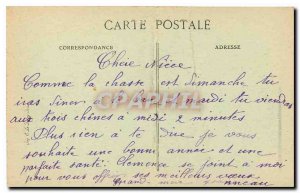 CARTE POSTALE
CORRESPONDANCE
ADRESSE
Chère Nièce
Comme la chasse est dimanche tu
iras diner à mardi tu viendras
aux trois chênes à midi 2 minutes
Plus rien à te dire je vous
souhaite une bonne année et une
parfaite santé. Clémence se joint à moi
pour vous offrir ses meilleurs vœux